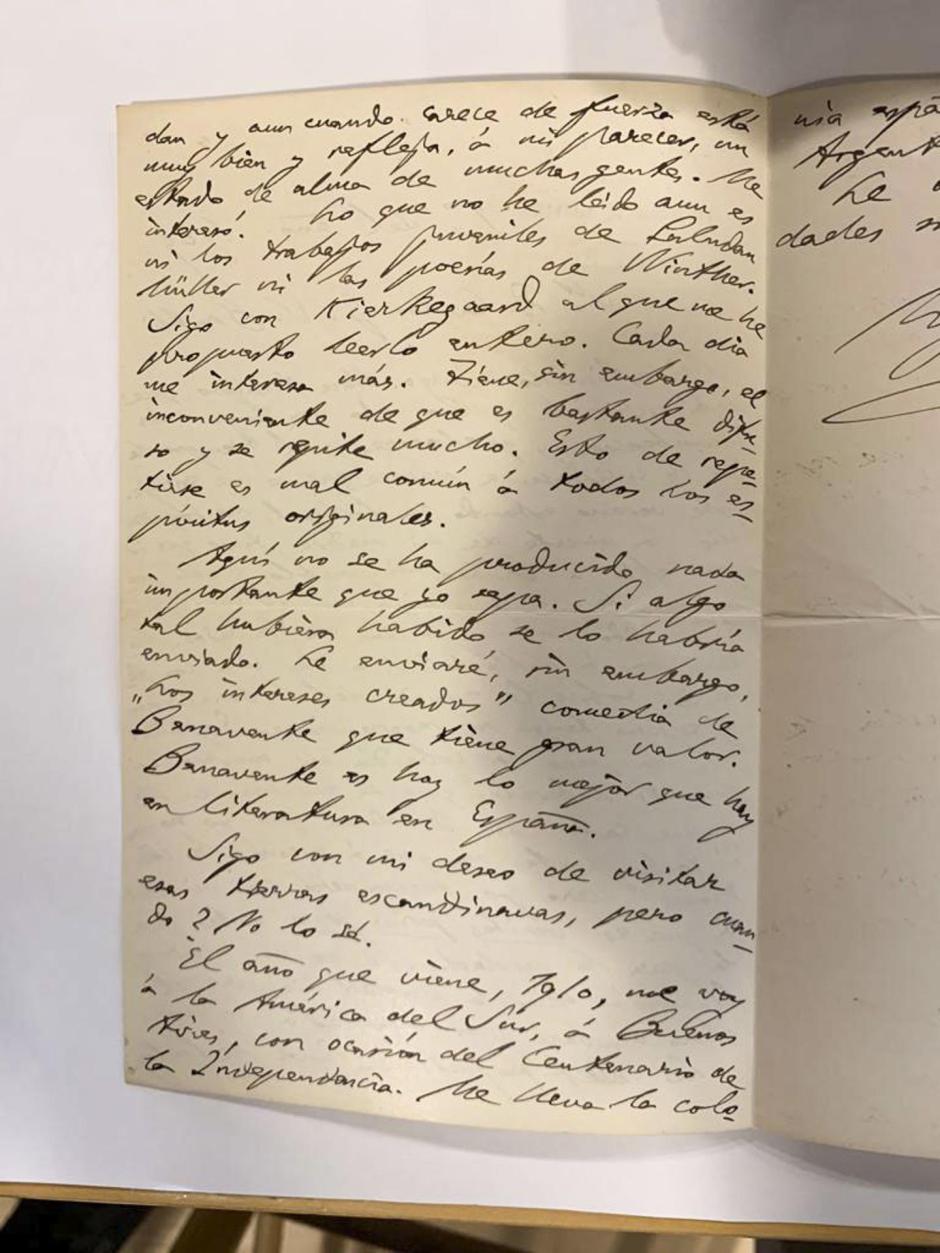 dan y aun cuando carece de fuerza está
muy bien y refleja, á mi parecer, un
estado de alma de muchas gentes. Me
interesó. Lo que no he leído aun es
ni los trabajos juveniles de Paludan
Müller ni las poesías de Winther.
Sigo con Kierkegaard al que me he
propuesto leerlo entero. Cada dia
me interesa más. Tiene, sin embargo, el
inconveniente de que es bastante difu-
so y se repite mucho. Esto de repe-
tirse es mal común á todos los es-
píritus originales.
Aquí no se ha producido nada
importante que yo sepa. Si algo
tal hubiera habido se lo habría
enviado. Le enviaré, sin embargo,
"Los intereses creados" comedia de
Benavente que tiene gran valor.
Benavente es hoy lo mejor que hay
en literatura en España.
Sigo con mi deseo de visitar
esas tierras escandinavas, pero cuan-
do? No lo sé.
El año que viene, 1910, me voy
á la América del Sur, á Buenos
Aires, con ocasión del Centenario de
la Independencia. Me lleva la colo-
nia espa
Argent
Le
dades